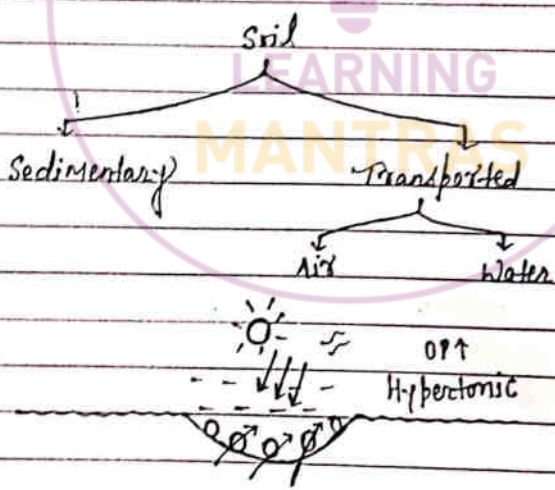 Soil
LEARNING
MANTRAS
Sedimentary
Transported
Air
Water
OP↑
Hypertonic